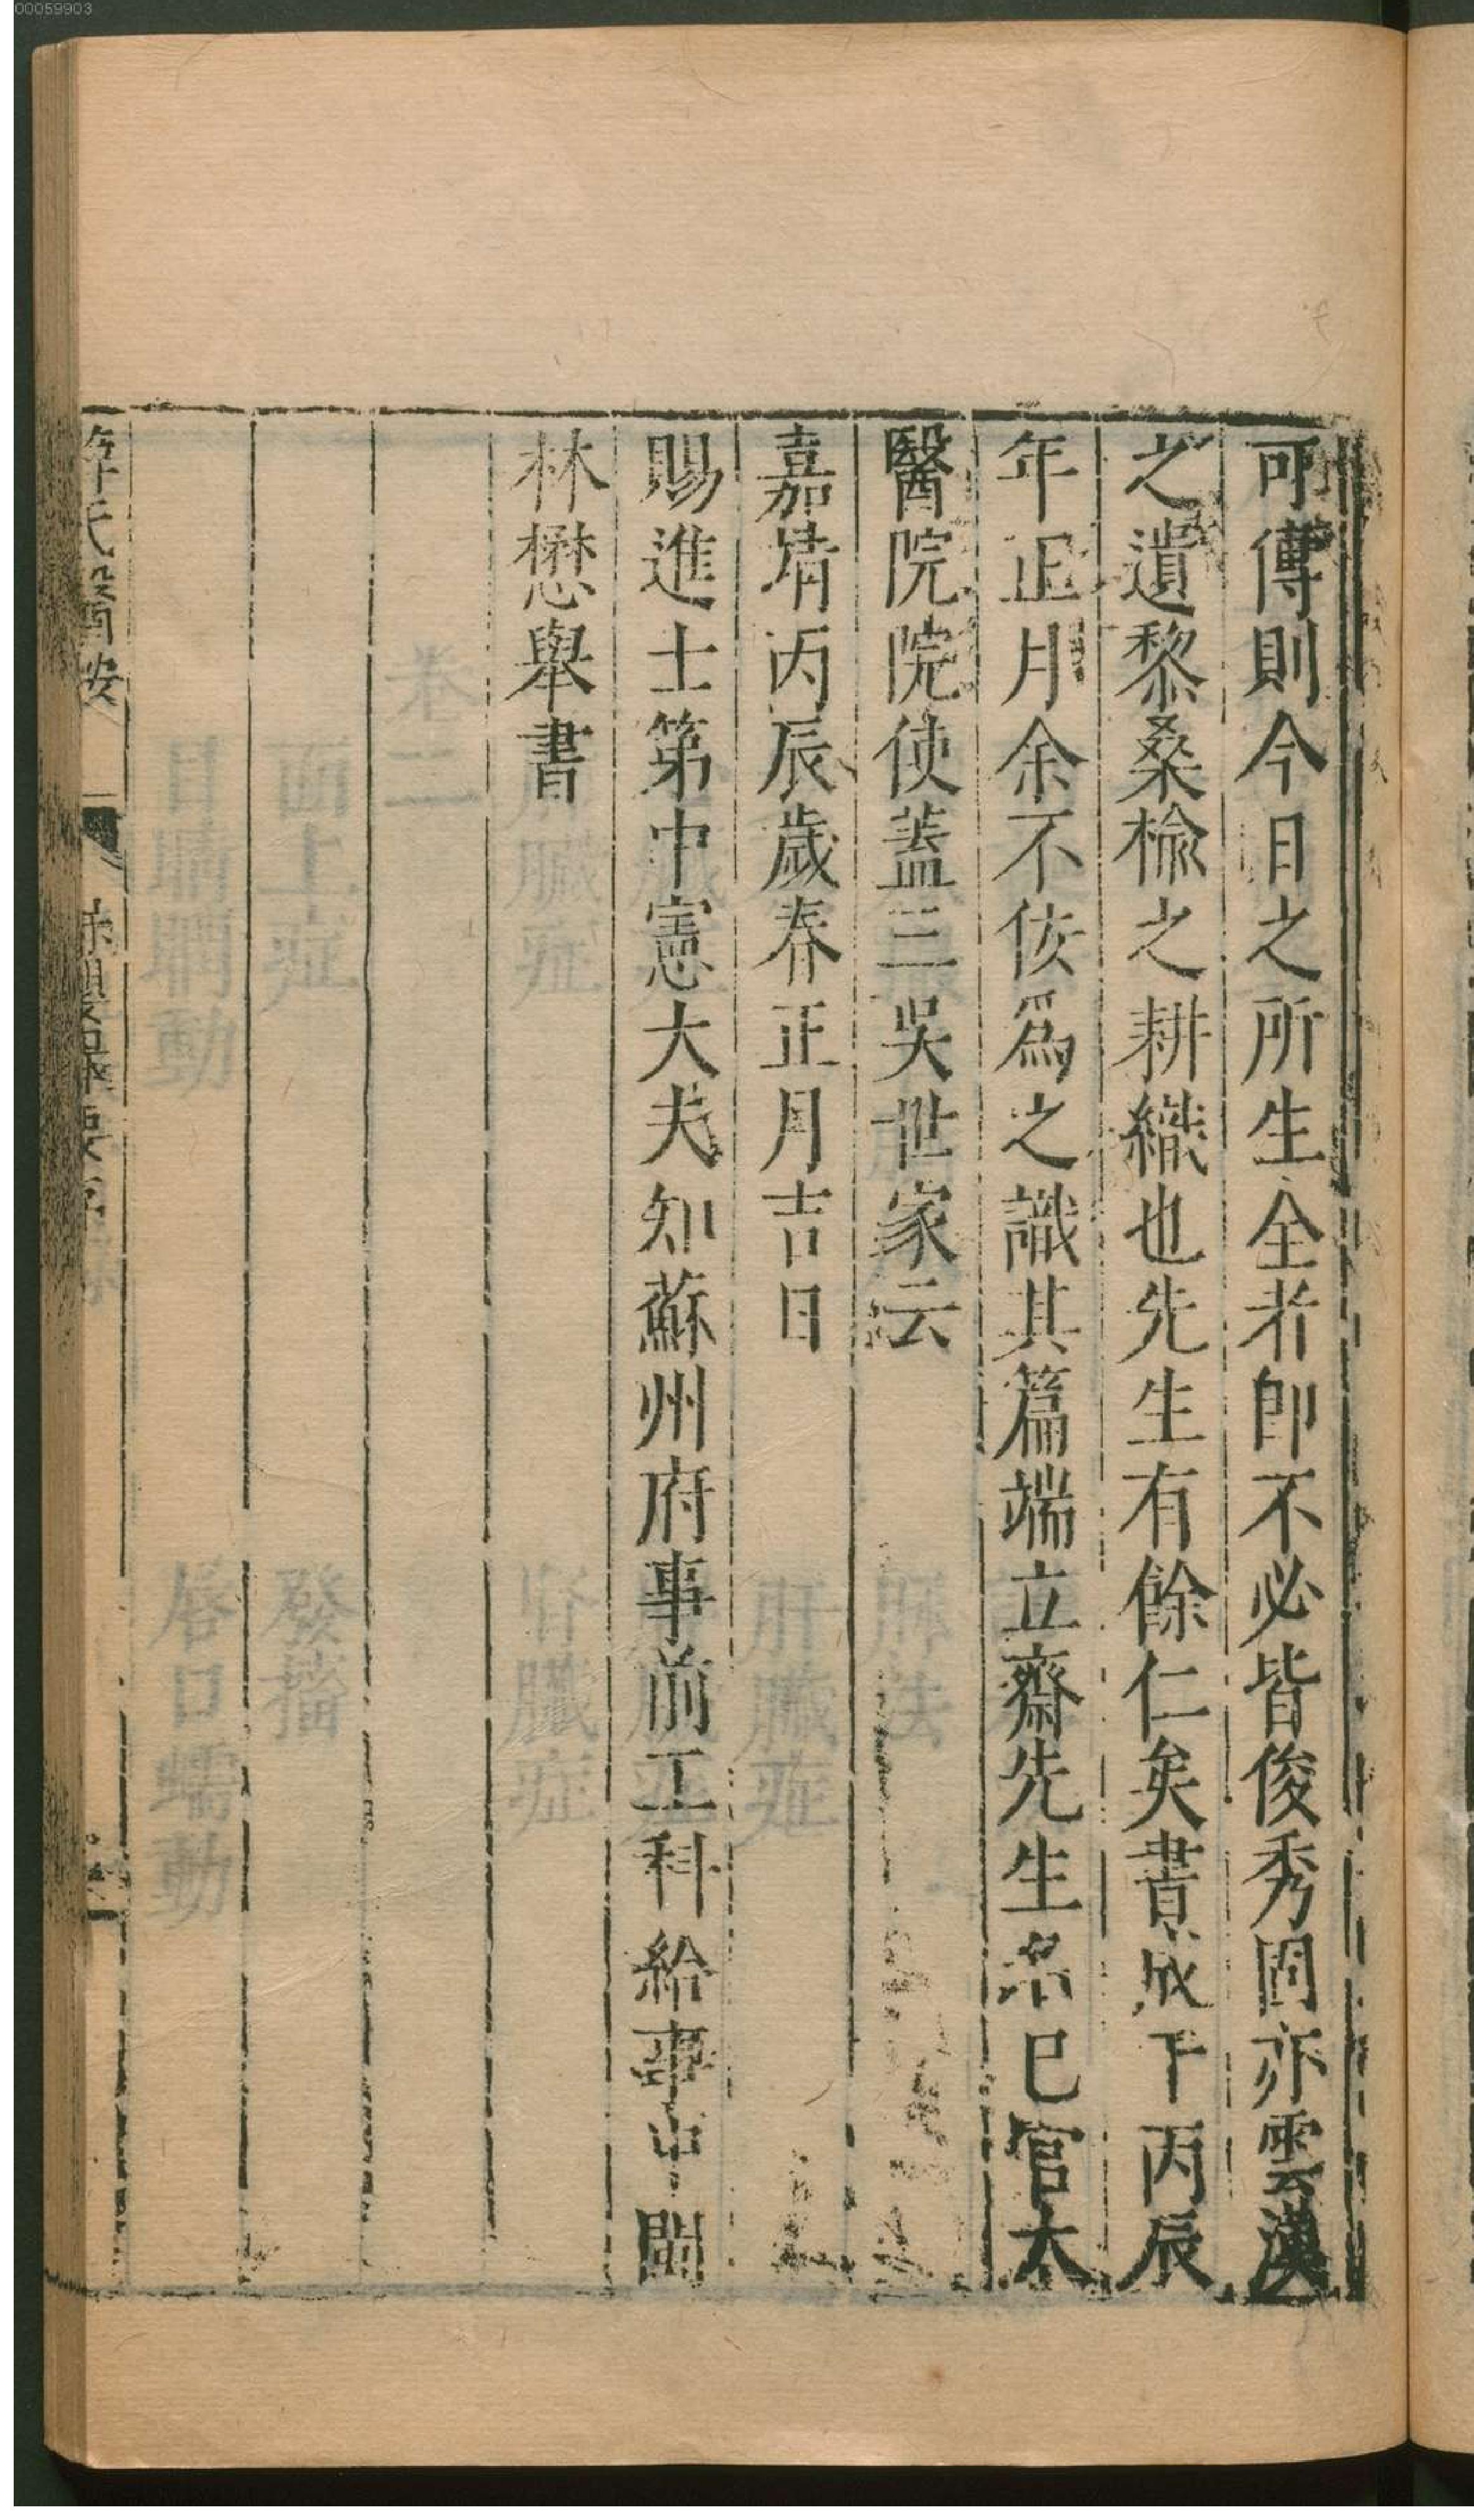 00059903
可傳則今日之所生全者卽不必皆俊秀固亦雲漢
之遺黎桑楡之耕織也先生有餘仁矣書成于丙辰
年正月余不佞爲之識其篇端立齋先生名已官太
醫院院使蓋三吳世家云
嘉靖丙辰歲春正月吉日
賜進士第中憲大夫知蘇州府事前工科給事中閩
林懋舉書
薛氏醫按